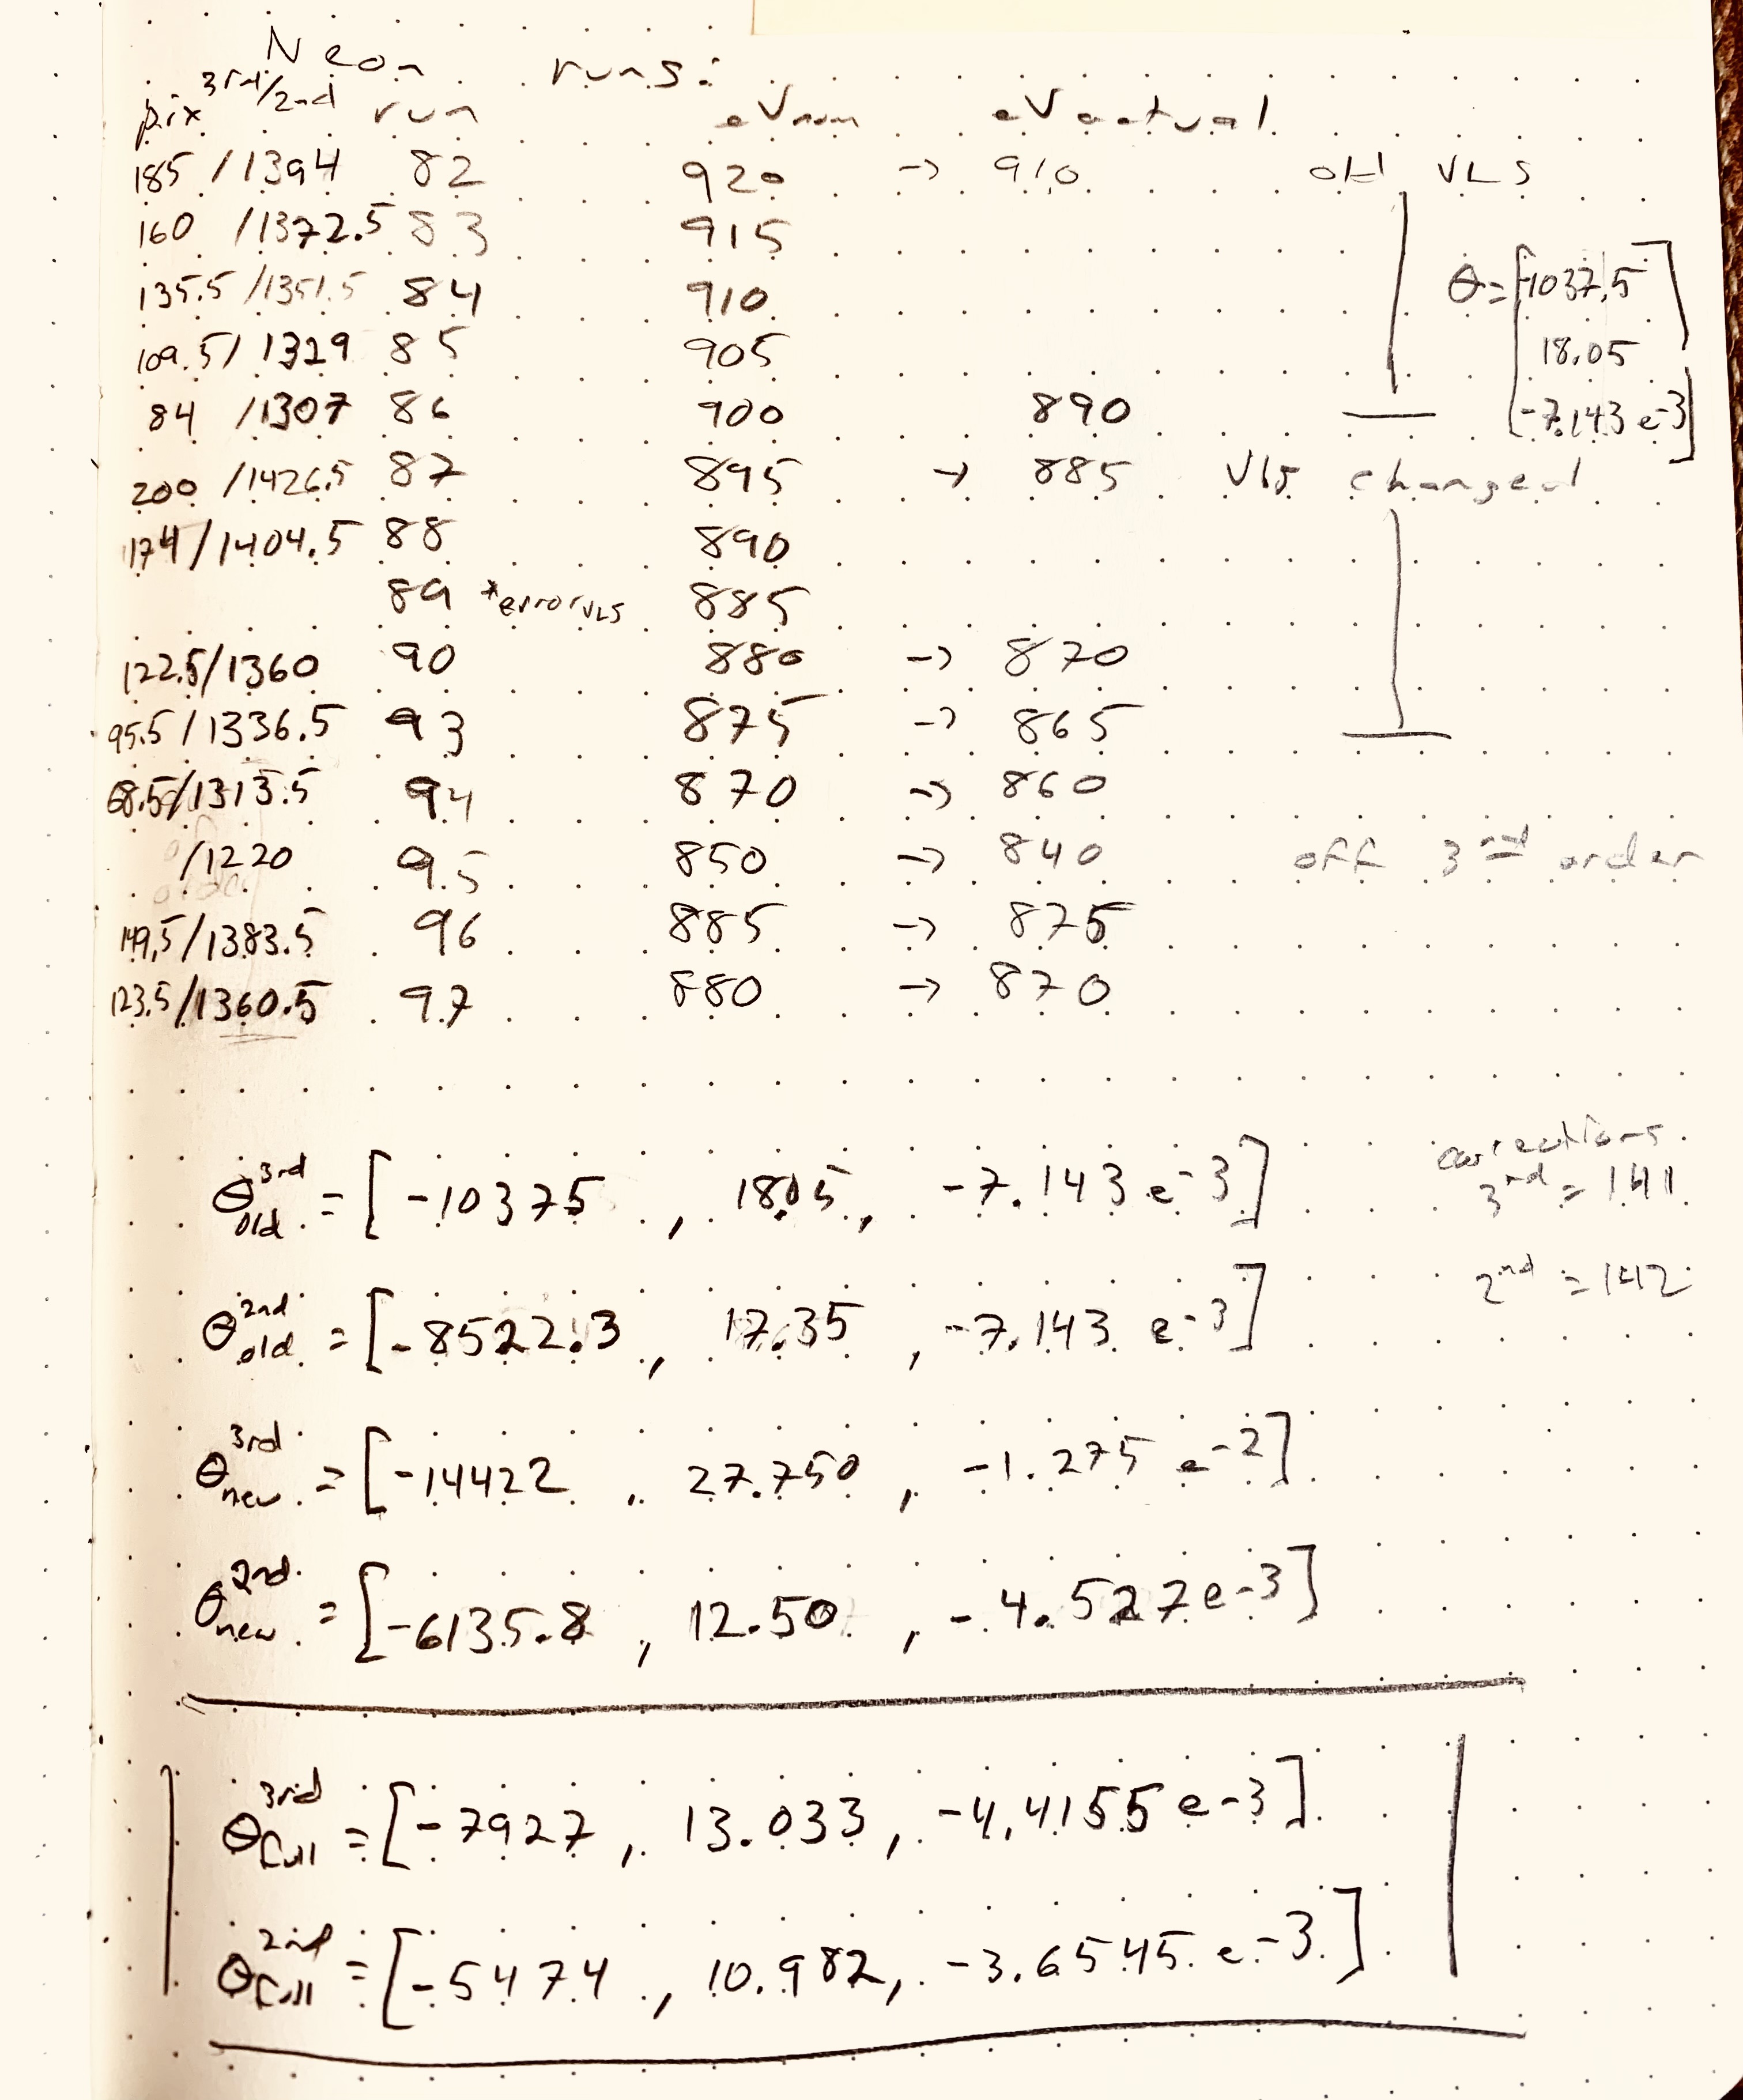 Neon runs:
pix 3rd/2nd run eVnom eV actual
185 / 1394 82 920 -> 910 old VLS
160 / 1372.5 83 915
135.5 / 1351.5 84 910 θ = [-1037.5
109.5 / 1329 85 905 18.05
84 / 1307 86 900 890 -7.143 e-3]
200 / 1426.5 87 895 -> 885 VLS changed
174 / 1404.5 88 890
89 *error VLS 885
122.5/1360 90 880 -> 870
95.5 / 1336.5 93 875 -> 865
68.5/1313.5 94 870 -> 860
/1220 95 850 -> 840 off 3rd order
149.5/1383.5 96 885 -> 875
123.5/1360.5 97 880 -> 870
corrections
θ 3rd old = [-10375, 18.05, -7.143 e-3] 3rd = 141
θ 2nd old = [-8522.3, 17.35, -7.143 e-3] 2nd = 142
θ 3rd new = [-14422, 27.750, -1.275 e-2]
θ 2nd new = [-6135.8, 12.50, -4.527e-3]
θ 3rd full = [-7927, 13.033, -4.4155 e-3]
θ 2nd full = [-5474, 10.982, -3.6545 e-3]